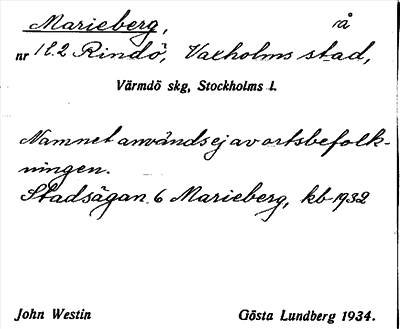 Marieberg, rå
nr 1 l. 2 Rindö, Vaxholms stad,
Värmdö skg, Stockholms l.
Namnet används ej av ortsbefolk-
ningen.
Stadsägan 6 Marieberg, kb 1932
John Westin Gösta Lundberg 1934.